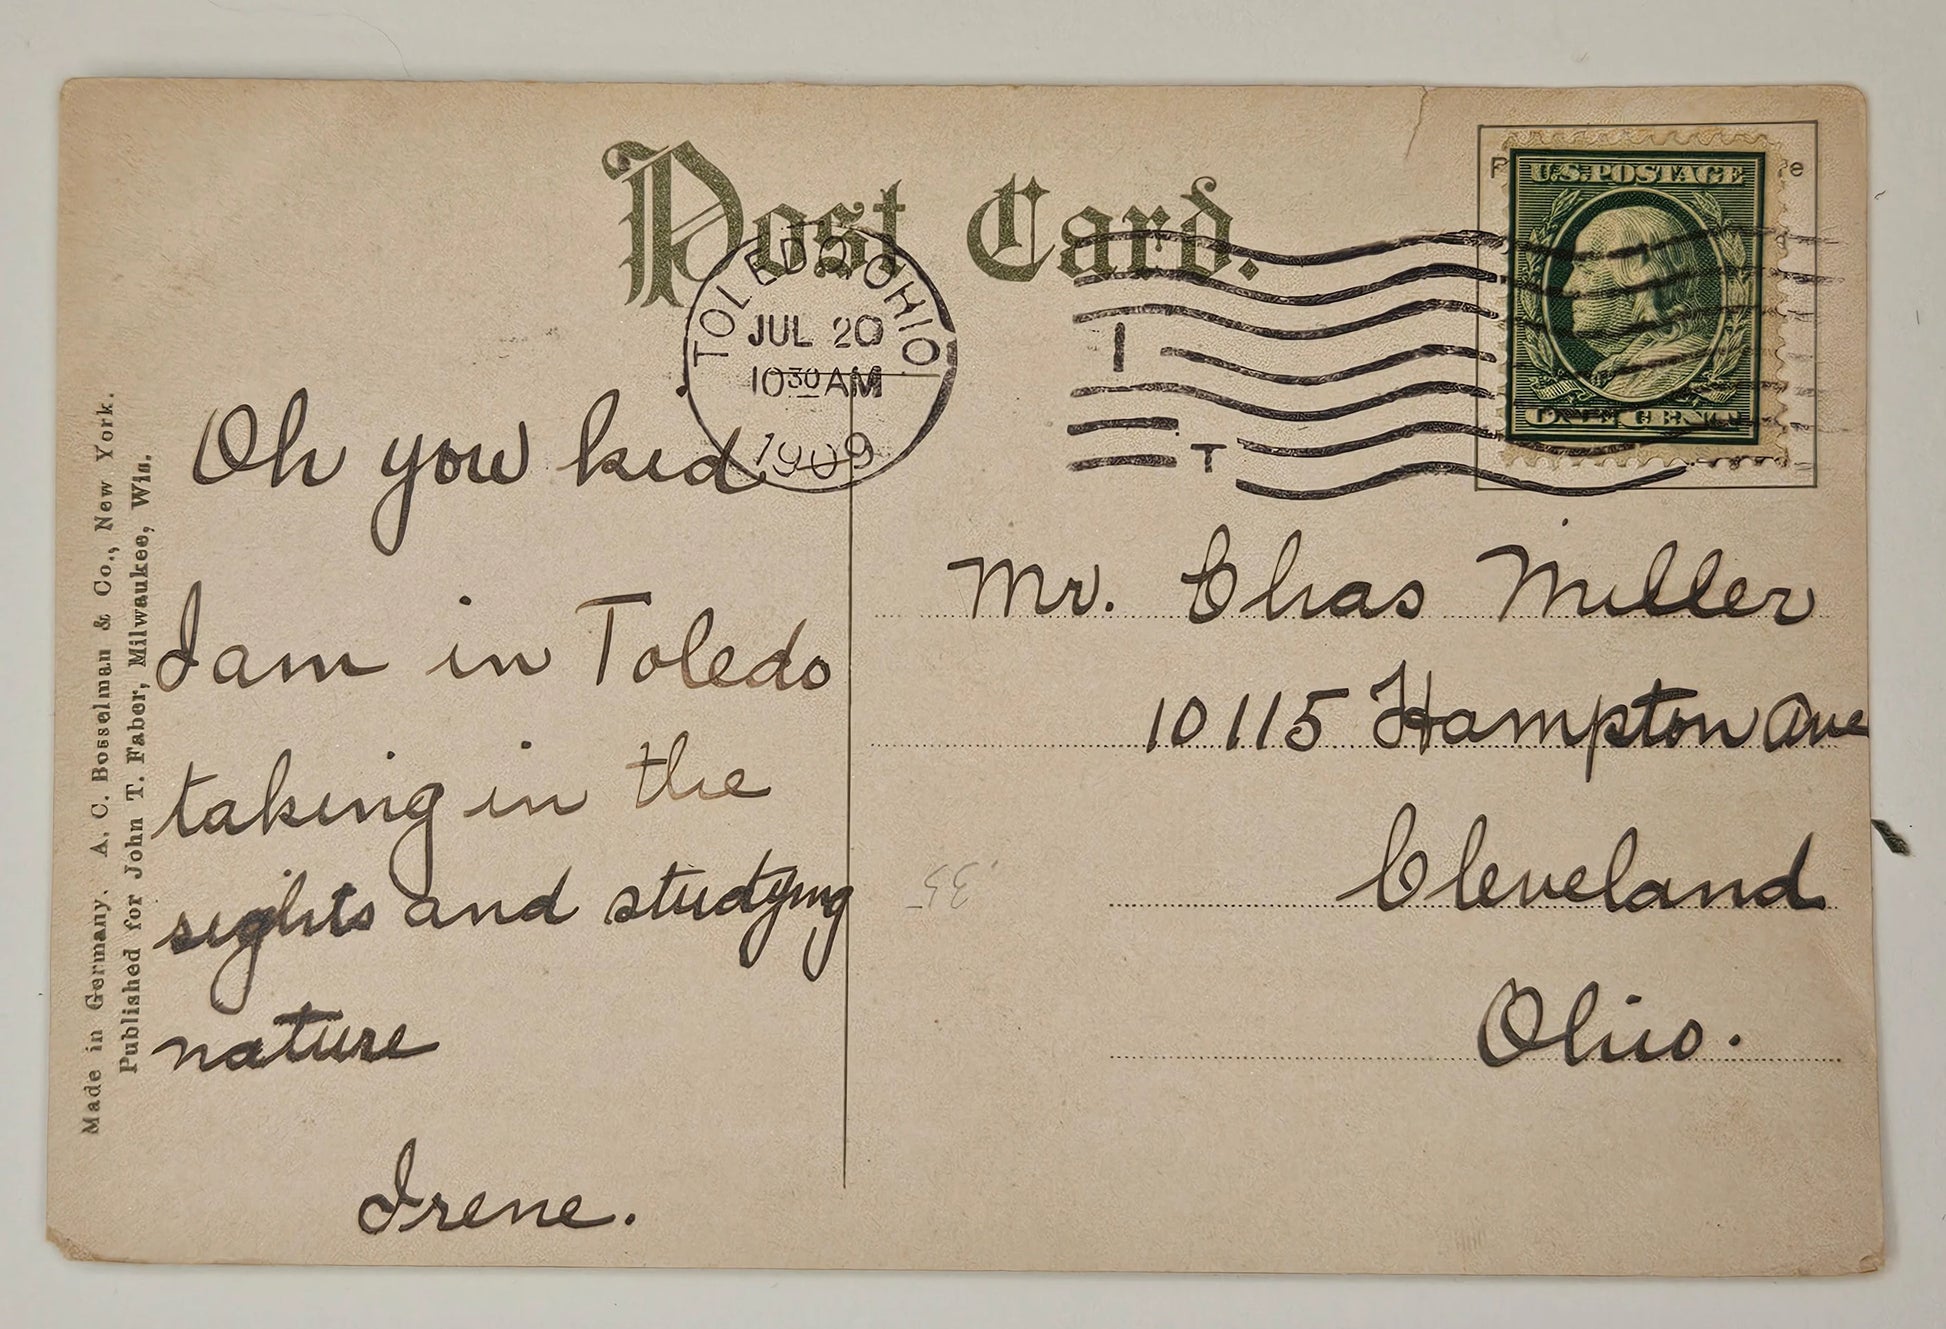 Post Card.
TOLEDO, OHIO
JUL 20
10 30 AM
1909
1
T
U.S. POSTAGE
ONE CENT
Oh you kid
I am in Toledo
taking in the
sights and studying
nature
Irene.
Mr. Chas Miller
10115 Hampton Ave
Cleveland
Ohio.
35
Made in Germany. A. C. Bosselman & Co., New York.
Published for John T. Faber, Milwaukee, Wis.